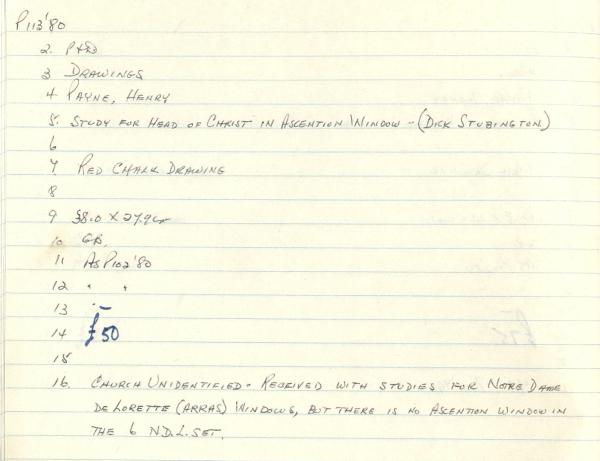 P113'80
2. P&D
3 DRAWINGS
4 PAYNE, HENRY
5. STUDY FOR HEAD OF CHRIST IN ASCENTION WINDOW - (DICK STUBINGTON)
6
7 RED CHALK DRAWING
8
9 38.0 X 27.9cm
10 GB.
11 AS P102'80
12 " "
13 -
14 £50
15
16. CHURCH UNIDENTIFIED - RECEIVED WITH STUDIES FOR NOTRE DAME
DE LORETTE (ARRAS) WINDOWS, BUT THERE IS NO ASCENTION WINDOW IN
THE 6 N.D.L. SET.